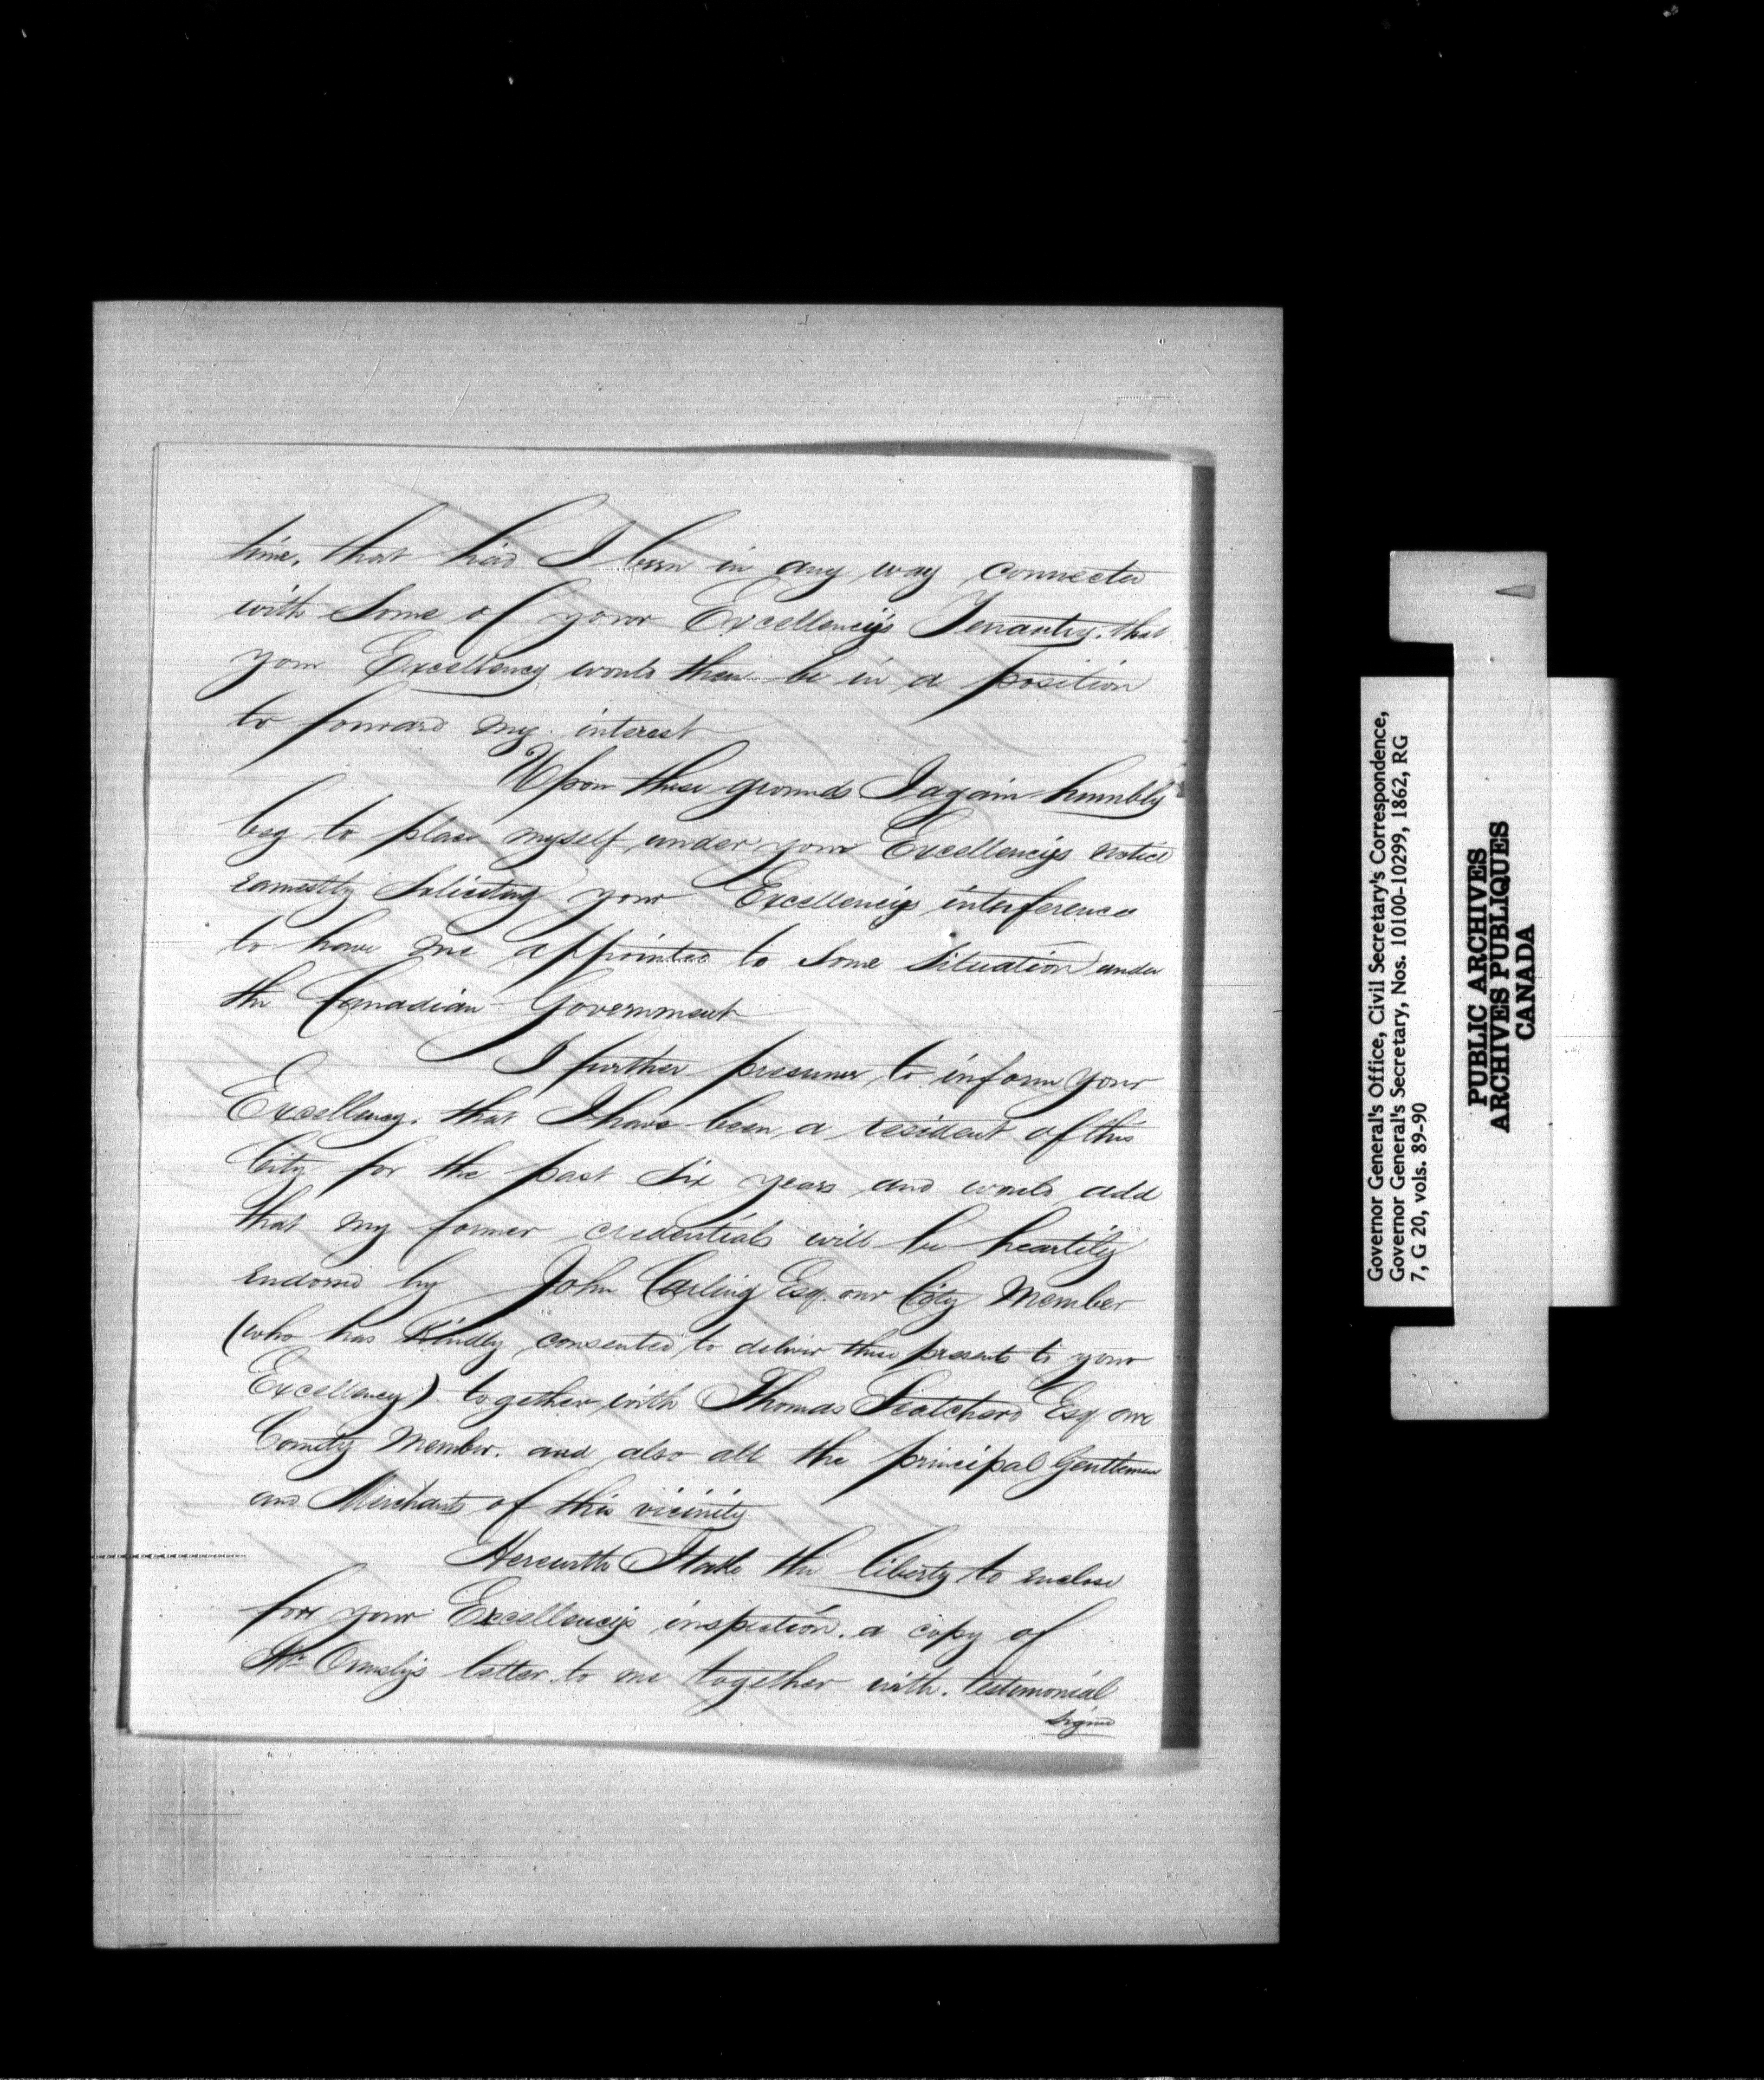 time, that had I been in any way connected
with some of your Excellency's Tenantry, that
your Excellency would then be in a position
to forward my interest
Upon these grounds I again humbly
beg to place myself under your Excellency's notice
earnestly soliciting your Excellency's interference
to have me appointed to some situation under
the Canadian Government
I further presume to inform your
Excellency, that I have been a resident of this
City for the past six years and would add
that my former credentials will be heartily
endorsed by John Carling Esq. our City Member
(who has kindly consented to deliver these presents to your
Excellency) together with Thomas Scatcherd Esq. our
County Member, and also all the principal Gentlemen
and Merchants of this vicinity
Herewith I take the liberty to enclose
for your Excellency's inspection, a copy of
Mr. Ormsby's letter to me together with testimonial
signed
Governor General's Office, Civil Secretary's Correspondence,
Governor General's Secretary, Nos. 10100-10299, 1862, RG
7, G 20, vols. 89-90
PUBLIC ARCHIVES
ARCHIVES PUBLIQUES
CANADA